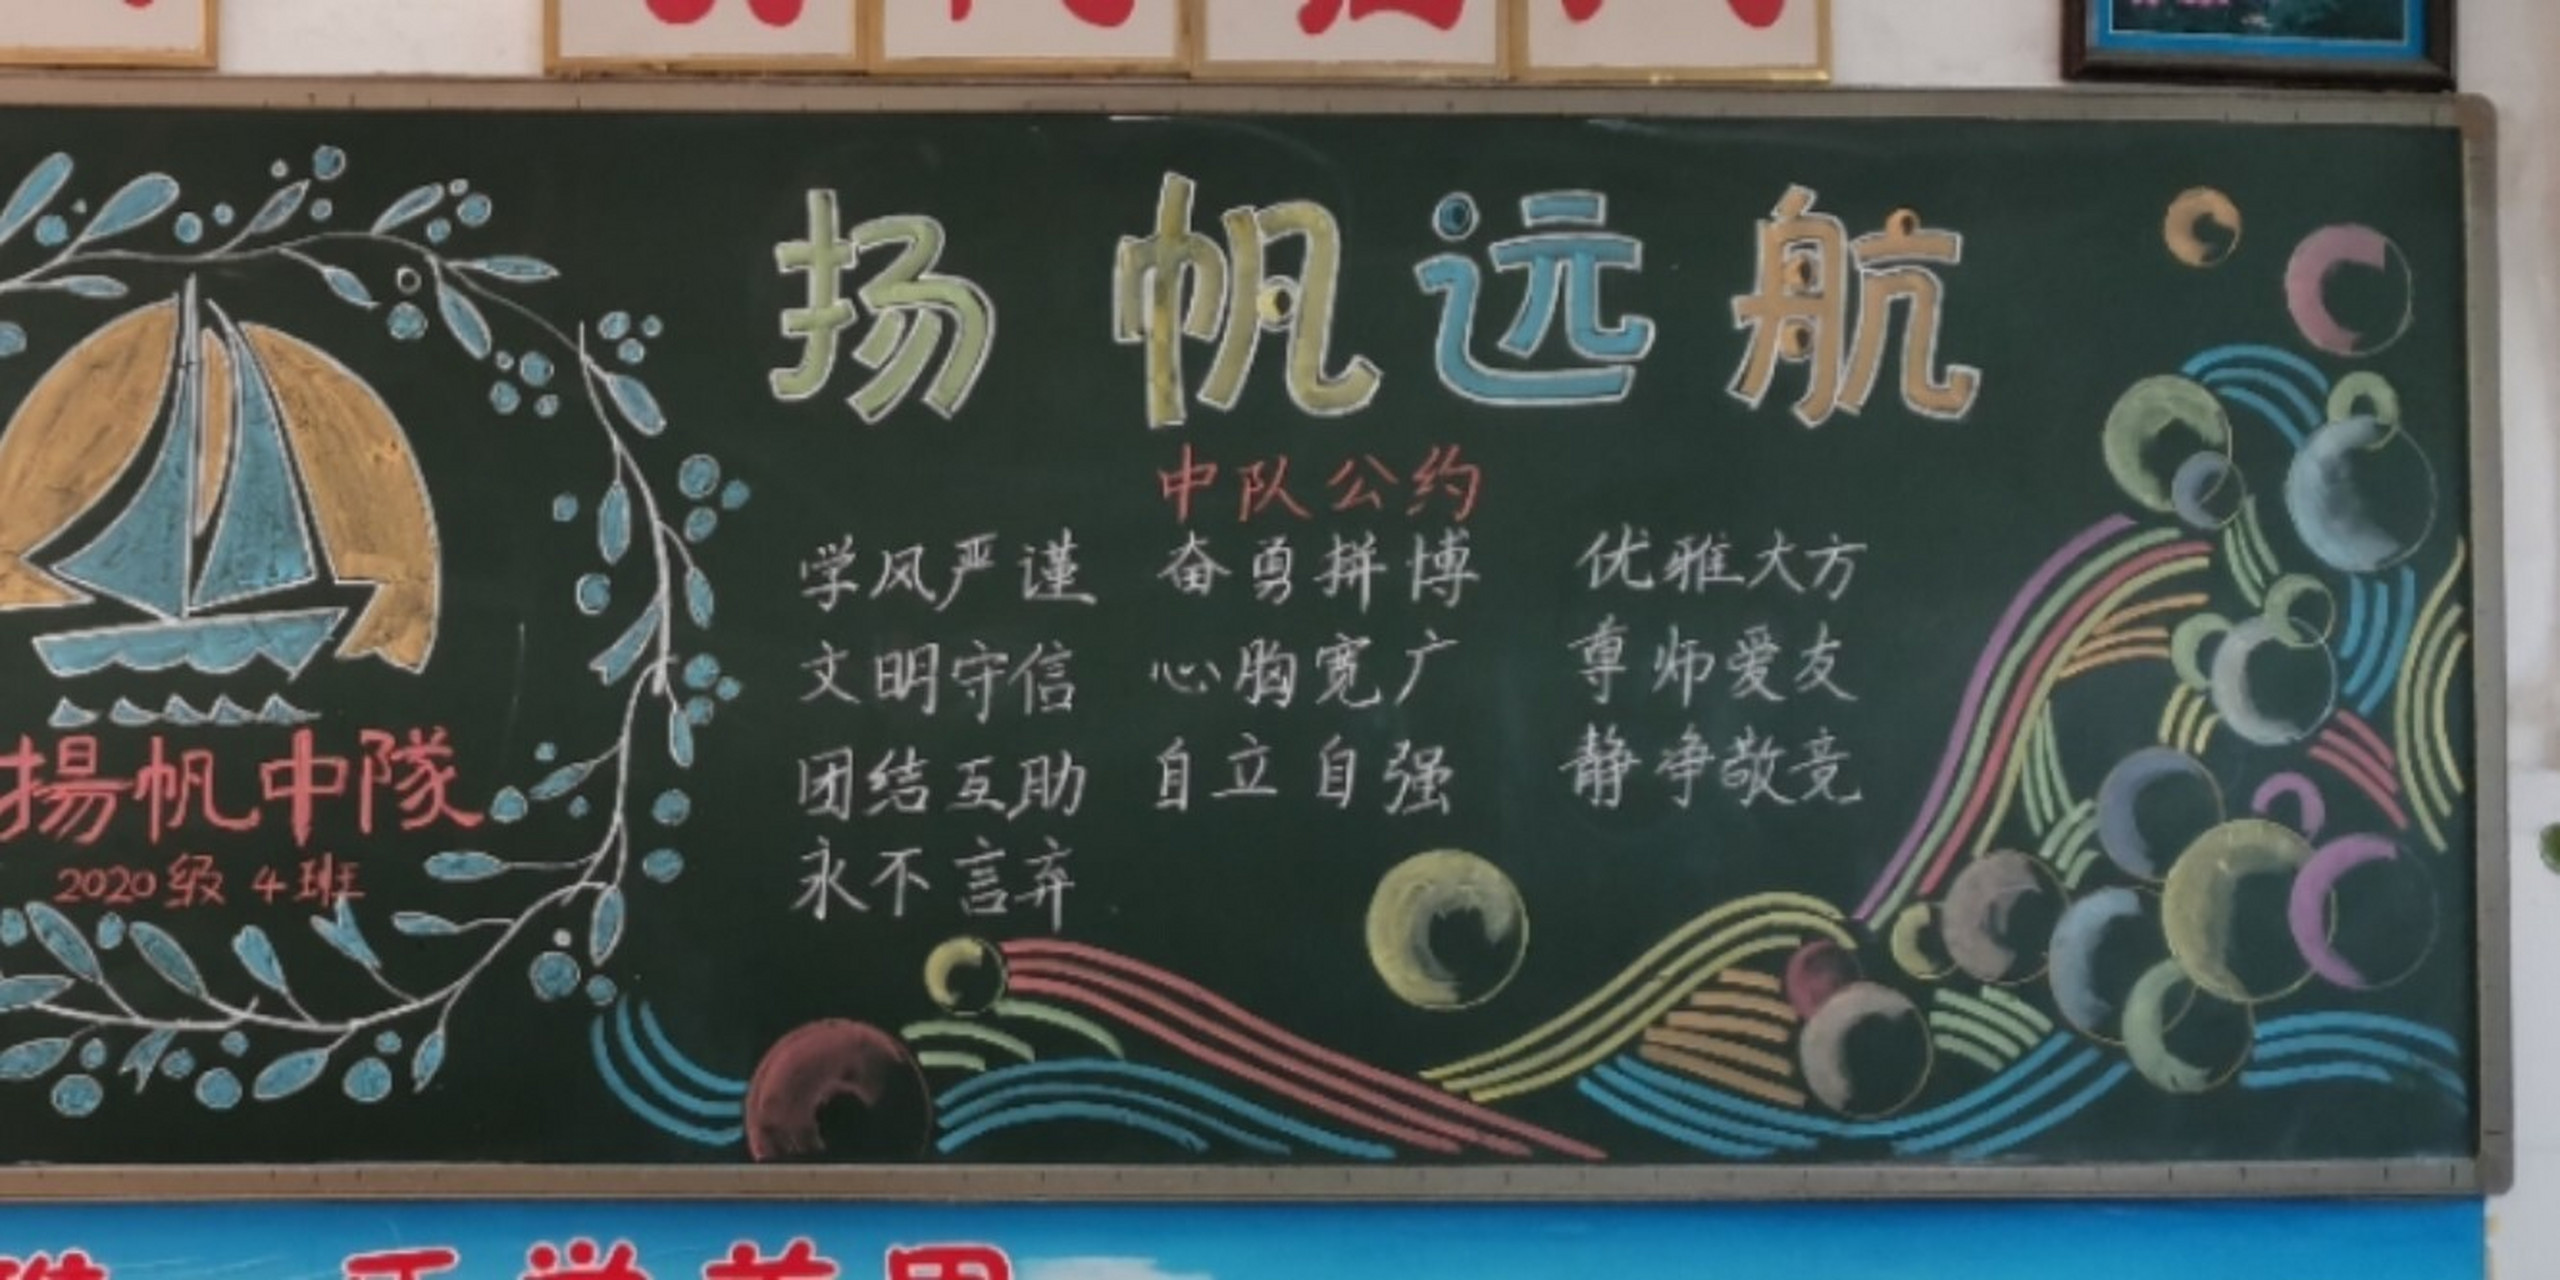 扬帆远航
中队公约
学风严谨 奋勇拼博 优雅大方
文明守信 心胸宽广 尊师爱友
团结互助 自立自强 静净敬竞
永不言弃
揚帆中隊
2020级 4班